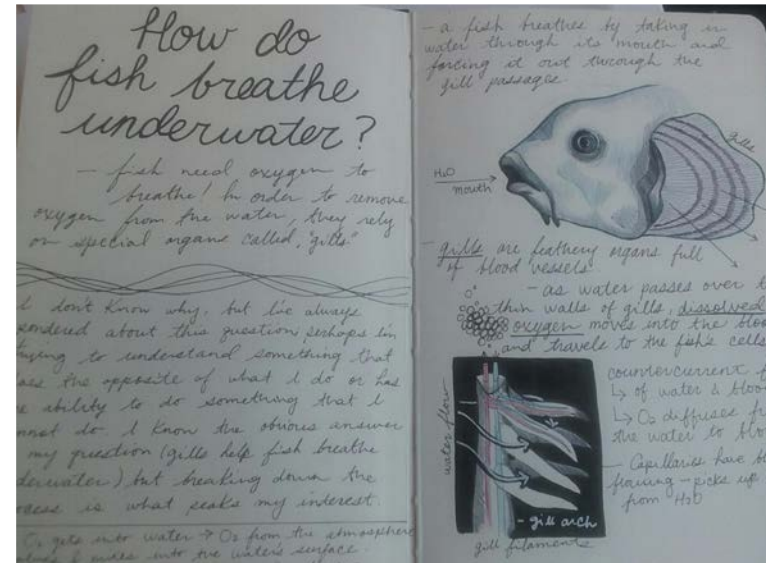 How do
fish breathe
underwater?
- fish need oxygen to
breathe! In order to remove
oxygen from the water, they rely
on special organs called, "gills"
I don't know why, but I've always
about this question, perhaps I'm
trying to understand something that
the opposite of what I do or has
ability to do something that I
do. I know the obvious answer
my question (gills help fish breathe
) but breaking down the
is what peaks my interest.
O₂ gets into water → O₂ from the atmosphere
& mixes into the water's surface.
- a fish breathes by taking in
water through its mouth and
forcing it out through the
gill passages.
gills
H₂O
mouth
- gills are feathery organs full
of blood vessels
- as water passes over
thin walls of gills, dissolved
oxygen moves into the
and travels to the fish's cells
countercurrent
↳ of water &
↳ O₂ diffuses
the water to
- Capillaries have
flowing - picks up
from H₂O
water flow
- gill arch
gill filaments